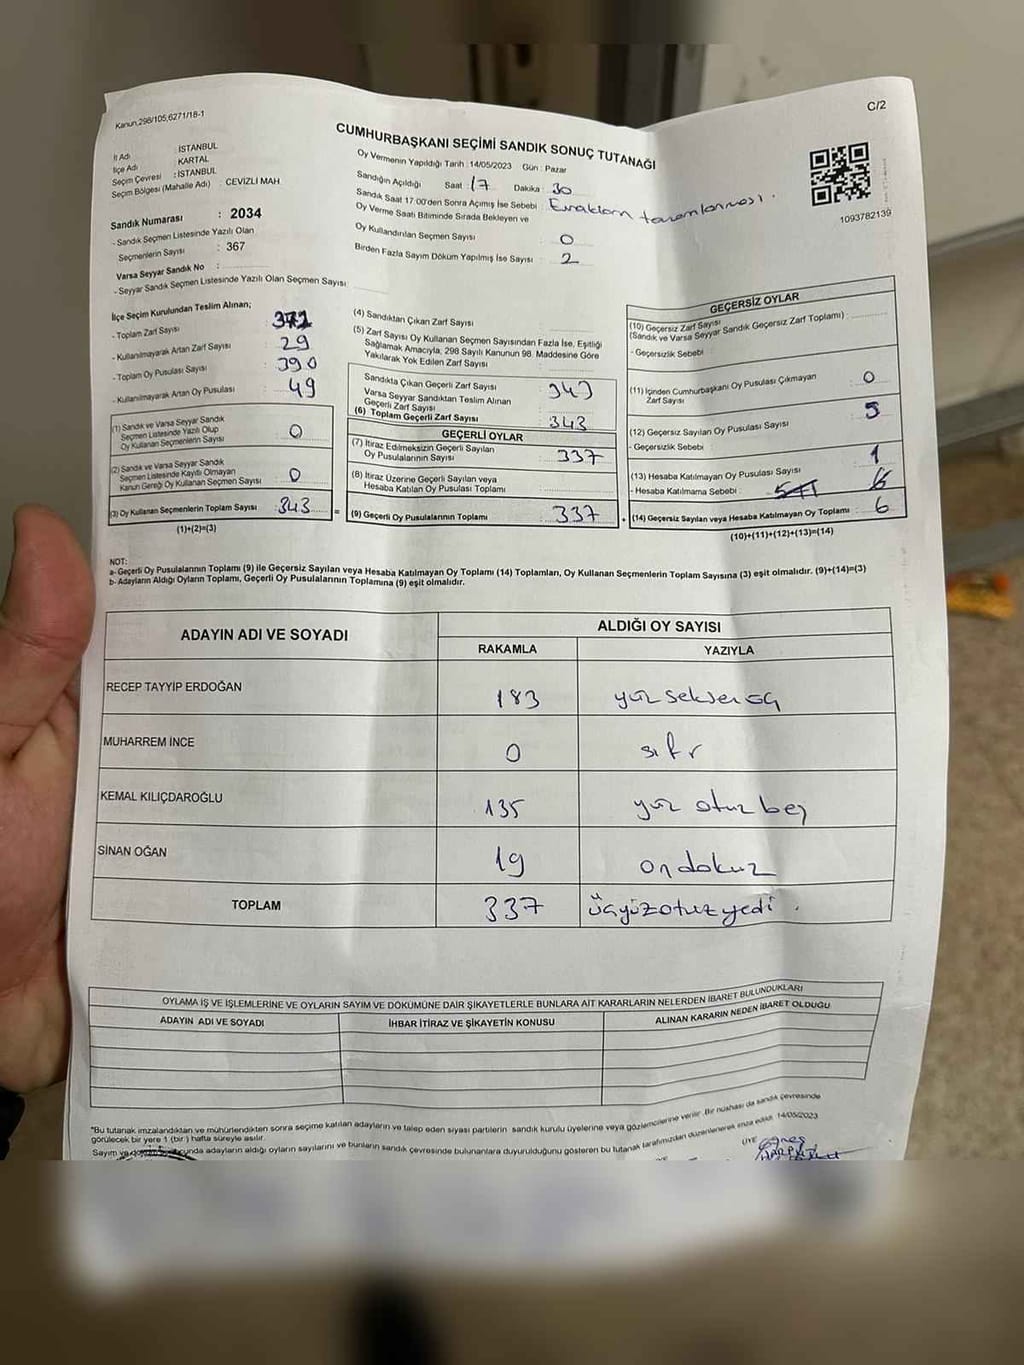 C/2
Kanun,298/105,6271/18-1
CUMHURBAŞKANI SEÇİMİ SANDIK SONUÇ TUTANAĞI
İl Adı : İSTANBUL
İlçe Adı : KARTAL
Seçim Çevresi : İSTANBUL
Seçim Bölgesi (Mahalle Adı) : CEVİZLİ MAH
Sandık Numarası : 2034
- Sandık Seçmen Listesinde Yazılı Olan
Seçmenlerin Sayısı : 367
Varsa Seyyar Sandık No :
- Seyyar Sandık Seçmen Listesinde Yazılı Olan Seçmen Sayısı
Oy Vermenin Yapıldığı Tarih :14/05/2023 Gün : Pazar
Sandığın Açıldığı Saat : 17 Dakika : 30
Sandık Saat 17:00'den Sonra Açılmış İse Sebebi : Evrakların tamamlanması.
Oy Verme Saati Bitiminde Sırada Bekleyen ve
Oy Kullandırılan Seçmen Sayısı : 0
Birden Fazla Sayım Döküm Yapılmış İse Sayısı : 2
1093782139
İlçe Seçim Kurulundan Teslim Alınan;
- Toplam Zarf Sayısı : 372
- Kullanılmayarak Artan Zarf Sayısı : 29
- Toplam Oy Pusulası Sayısı : 390
- Kullanılmayarak Artan Oy Pusulası : 49
(1) Sandık ve Varsa Seyyar Sandık
Seçmen Listesinde Yazılı Olup
Oy Kullanan Seçmenlerin Sayısı : 0
(2) Sandık ve Varsa Seyyar Sandık
Seçmen Listesinde Kayıtlı Olmayan
Kanun Gereği Oy Kullanan Seçmen Sayısı : 0
(3) Oy Kullanan Seçmenlerin Toplam Sayısı : 343 =
(1)+(2)=(3)
(4) Sandıktan Çıkan Zarf Sayısı
(5) Zarf Sayısı Oy Kullanan Seçmen Sayısından Fazla İse, Eşitliği
Sağlamak Amacıyla, 298 Sayılı Kanunun 98. Maddesine Göre
Yakılarak Yok Edilen Zarf Sayısı
Sandıkta Çıkan Geçerli Zarf Sayısı 343
Varsa Seyyar Sandıktan Teslim Alınan
Geçerli Zarf Sayısı
(6) Toplam Geçerli Zarf Sayısı : 343
GEÇERLİ OYLAR
(7) İtiraz Edilmeksizin Geçerli Sayılan
Oy Pusulalarının Sayısı : 337
(8) İtiraz Üzerine Geçerli Sayılan veya
Hesaba Katılan Oy Pusulası Toplamı
(9) Geçerli Oy Pusulalarının Toplamı : 337 +
GEÇERSİZ OYLAR
(10) Geçersiz Zarf Sayısı
(Sandık ve Varsa Seyyar Sandık Geçersiz Zarf Toplamı) :
- Geçersizlik Sebebi
(11) İçinden Cumhurbaşkanı Oy Pusulası Çıkmayan
Zarf Sayısı : 0
(12) Geçersiz Sayılan Oy Pusulası Sayısı 5
- Geçersizlik Sebebi
(13) Hesaba Katılmayan Oy Pusulası Sayısı 1
- Hesaba Katılmama Sebebi : 6
(14) Geçersiz Sayılan veya Hesaba Katılmayan Oy Toplamı : 6
(10)+(11)+(12)+(13)=(14)
NOT:
a- Geçerli Oy Pusulalarının Toplamı (9) ile Geçersiz Sayılan veya Hesaba Katılmayan Oy Toplamı (14) Toplamları, Oy Kullanan Seçmenlerin Toplam Sayısına (3) eşit olmalıdır. (9)+(14)=(3)
b- Adayların Aldığı Oyların Toplamı, Geçerli Oy Pusulalarının Toplamına (9) eşit olmalıdır.
ADAYIN ADI VE SOYADI
ALDIĞI OY SAYISI
RAKAMLA YAZIYLA
RECEP TAYYİP ERDOĞAN 183 yüz seksen üç
MUHARREM İNCE 0 sıfır
KEMAL KILIÇDAROĞLU 135 yüz otuz beş
SİNAN OĞAN 19 on dokuz
TOPLAM 337 üçyüzotuzyedi .
OYLAMA İŞ VE İŞLEMLERİNE VE OYLARIN SAYIM VE DÖKÜMÜNE DAİR ŞİKAYETLERLE BUNLARA AİT KARARLARIN NELERDEN İBARET BULUNDUKLARI
ADAYIN ADI VE SOYADI İHBAR İTİRAZ VE ŞİKAYETİN KONUSU ALINAN KARARIN NEDEN İBARET OLDUĞU
*Bu tutanak imzalandıktan ve mühürlendikten sonra seçime katılan adayların ve talep eden siyasi partilerin sandık kurulu üyelerine veya gözlemcilerine verilir. Bir nüshası da sandık çevresinde
görülecek bir yere 1 (bir) hafta süreyle asılır.
Sayım ve sonucunda adayların aldığı oyların sayılarını ve bunların sandık çevresinde bulunanlara duyurulduğunu gösteren bu tutanak tarafımızdan düzenlenerek imza edildi. 14/05/2023
ÜYE